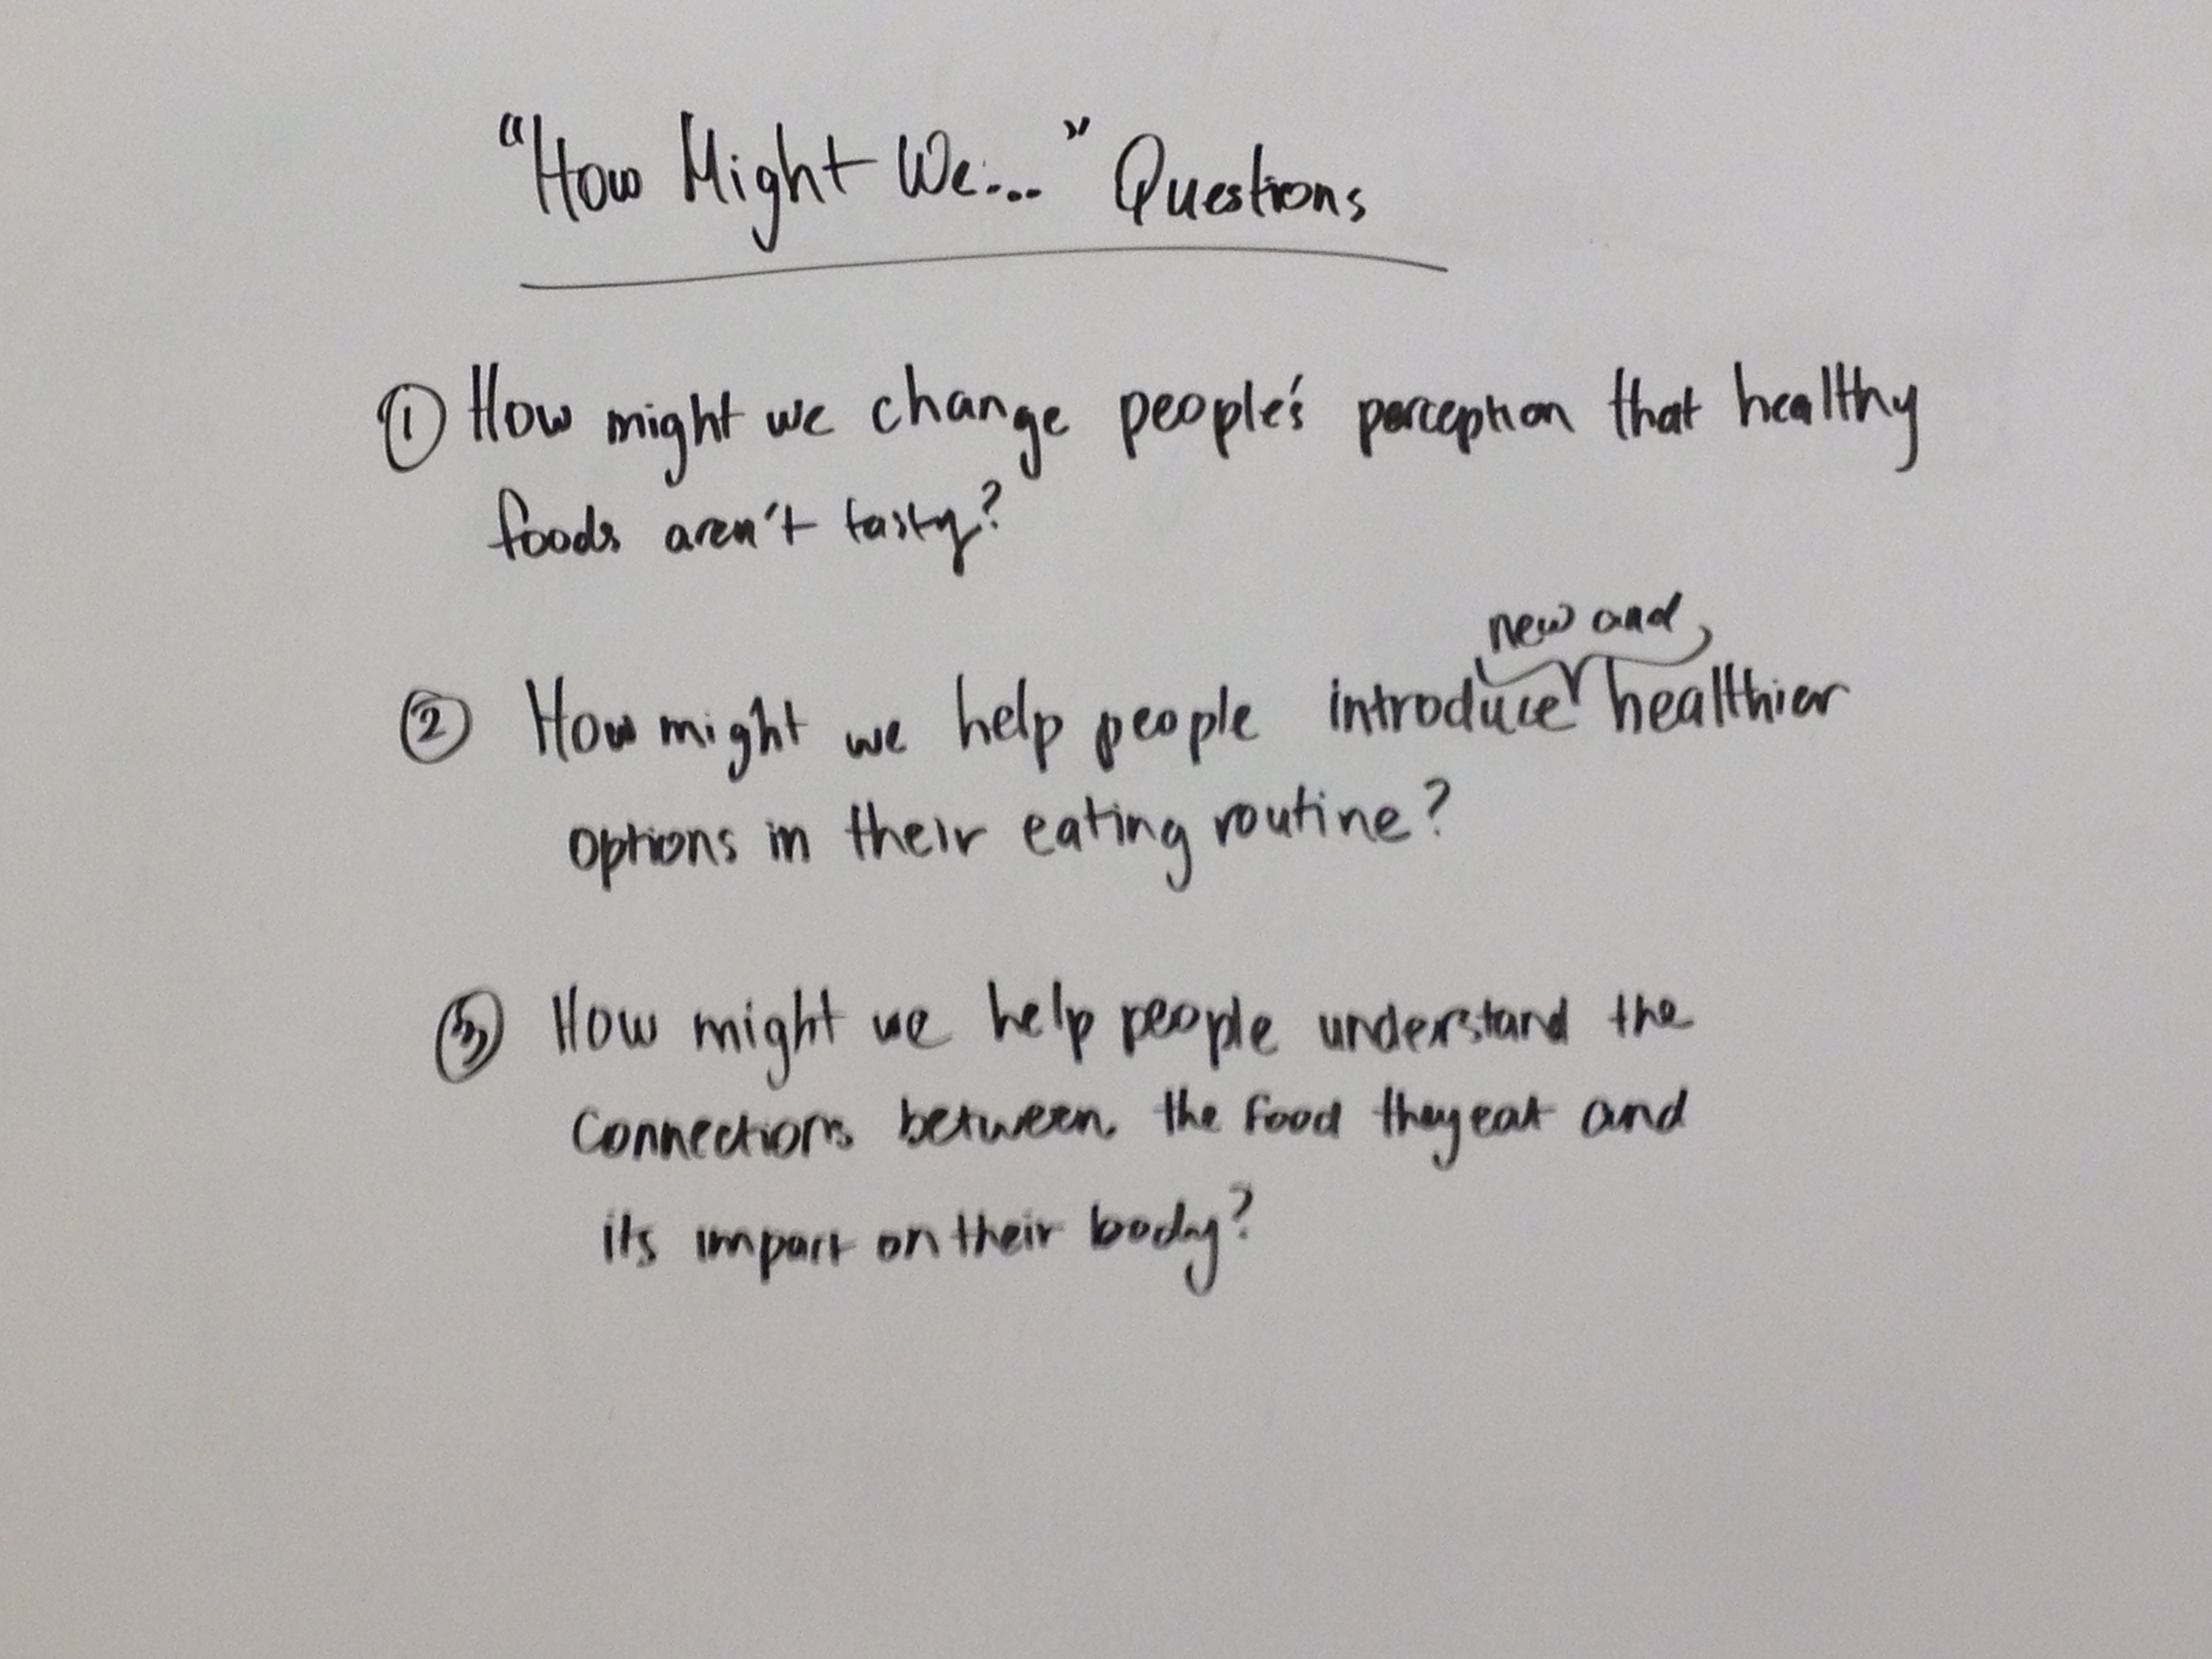 "How Might We... " Questions
① How might we change people's perception that healthy
foods aren't tasty?
new and
② How might we help people introduce healthier
options in their eating routine?
③ How might we help people understand the
connections between the food they eat and
its impact on their body?